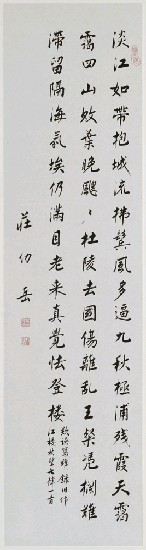 淡江如帶抱城流拂鬢風多逼九秋極浦殘霞天靄
靄四山敗葉晚颼〻杜陵去國傷離亂王粲憑欄
滯留隔海氛埃仍滿目老來真覺怯登樓
錄旧作
江樓秋望七律一首
莊幼岳